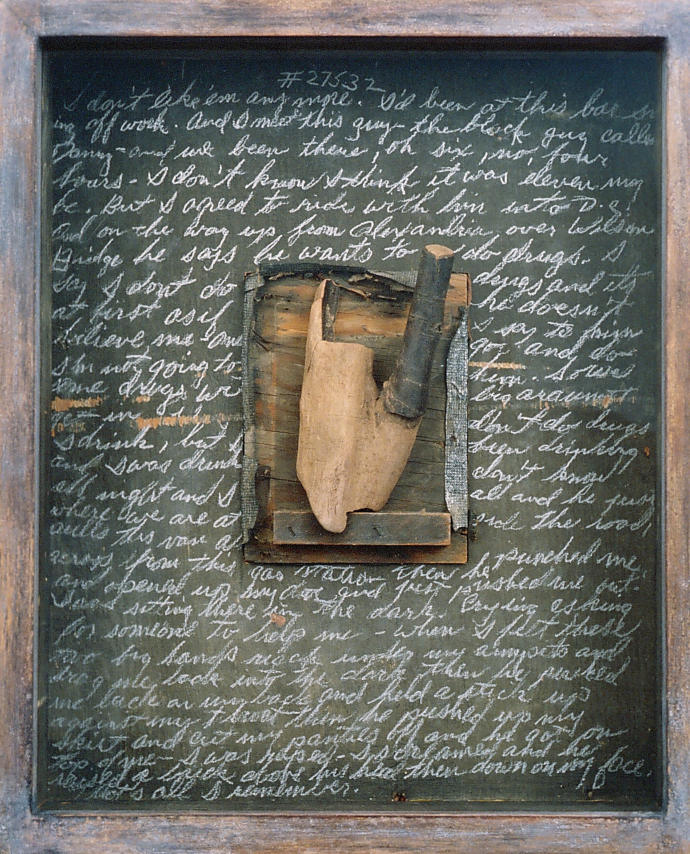 #27532
I don't like 'em any more. I'd been at this bar
ing off work. And I meet this guy - the black guy
and we been there, oh six, no, four
hours - I don't know I think it was eleven
be. But I agreed to ride with him into D.C.
And on the way up from Alexandria, over Wilson
Bridge he says he wants to do drugs. I
say I don't do drugs and it's
at first as if he doesn't
believe me - I say to him
I'm not going to go and do
some drugs wi him. So was
big argument
don't do drugs
I drink, but I been drinking
and I was drunk don't know
all night and I all and he just
where we are at side the road
pulls this van
across from this gas station then he punched me
and opened up my door and just pushed me out.
I was sitting there in the dark. Crying asking
for someone to help me - when I felt these
two big hands reach under my armpits and
drag me back into the dark then he pushed
me back on my back and held a stick up
against my throat then he pushed up my
skirt and cut my panties off and he got on
top of me - I was raped - I screamed and he
raised a brick above his head then down on my face.
that's all I remember.